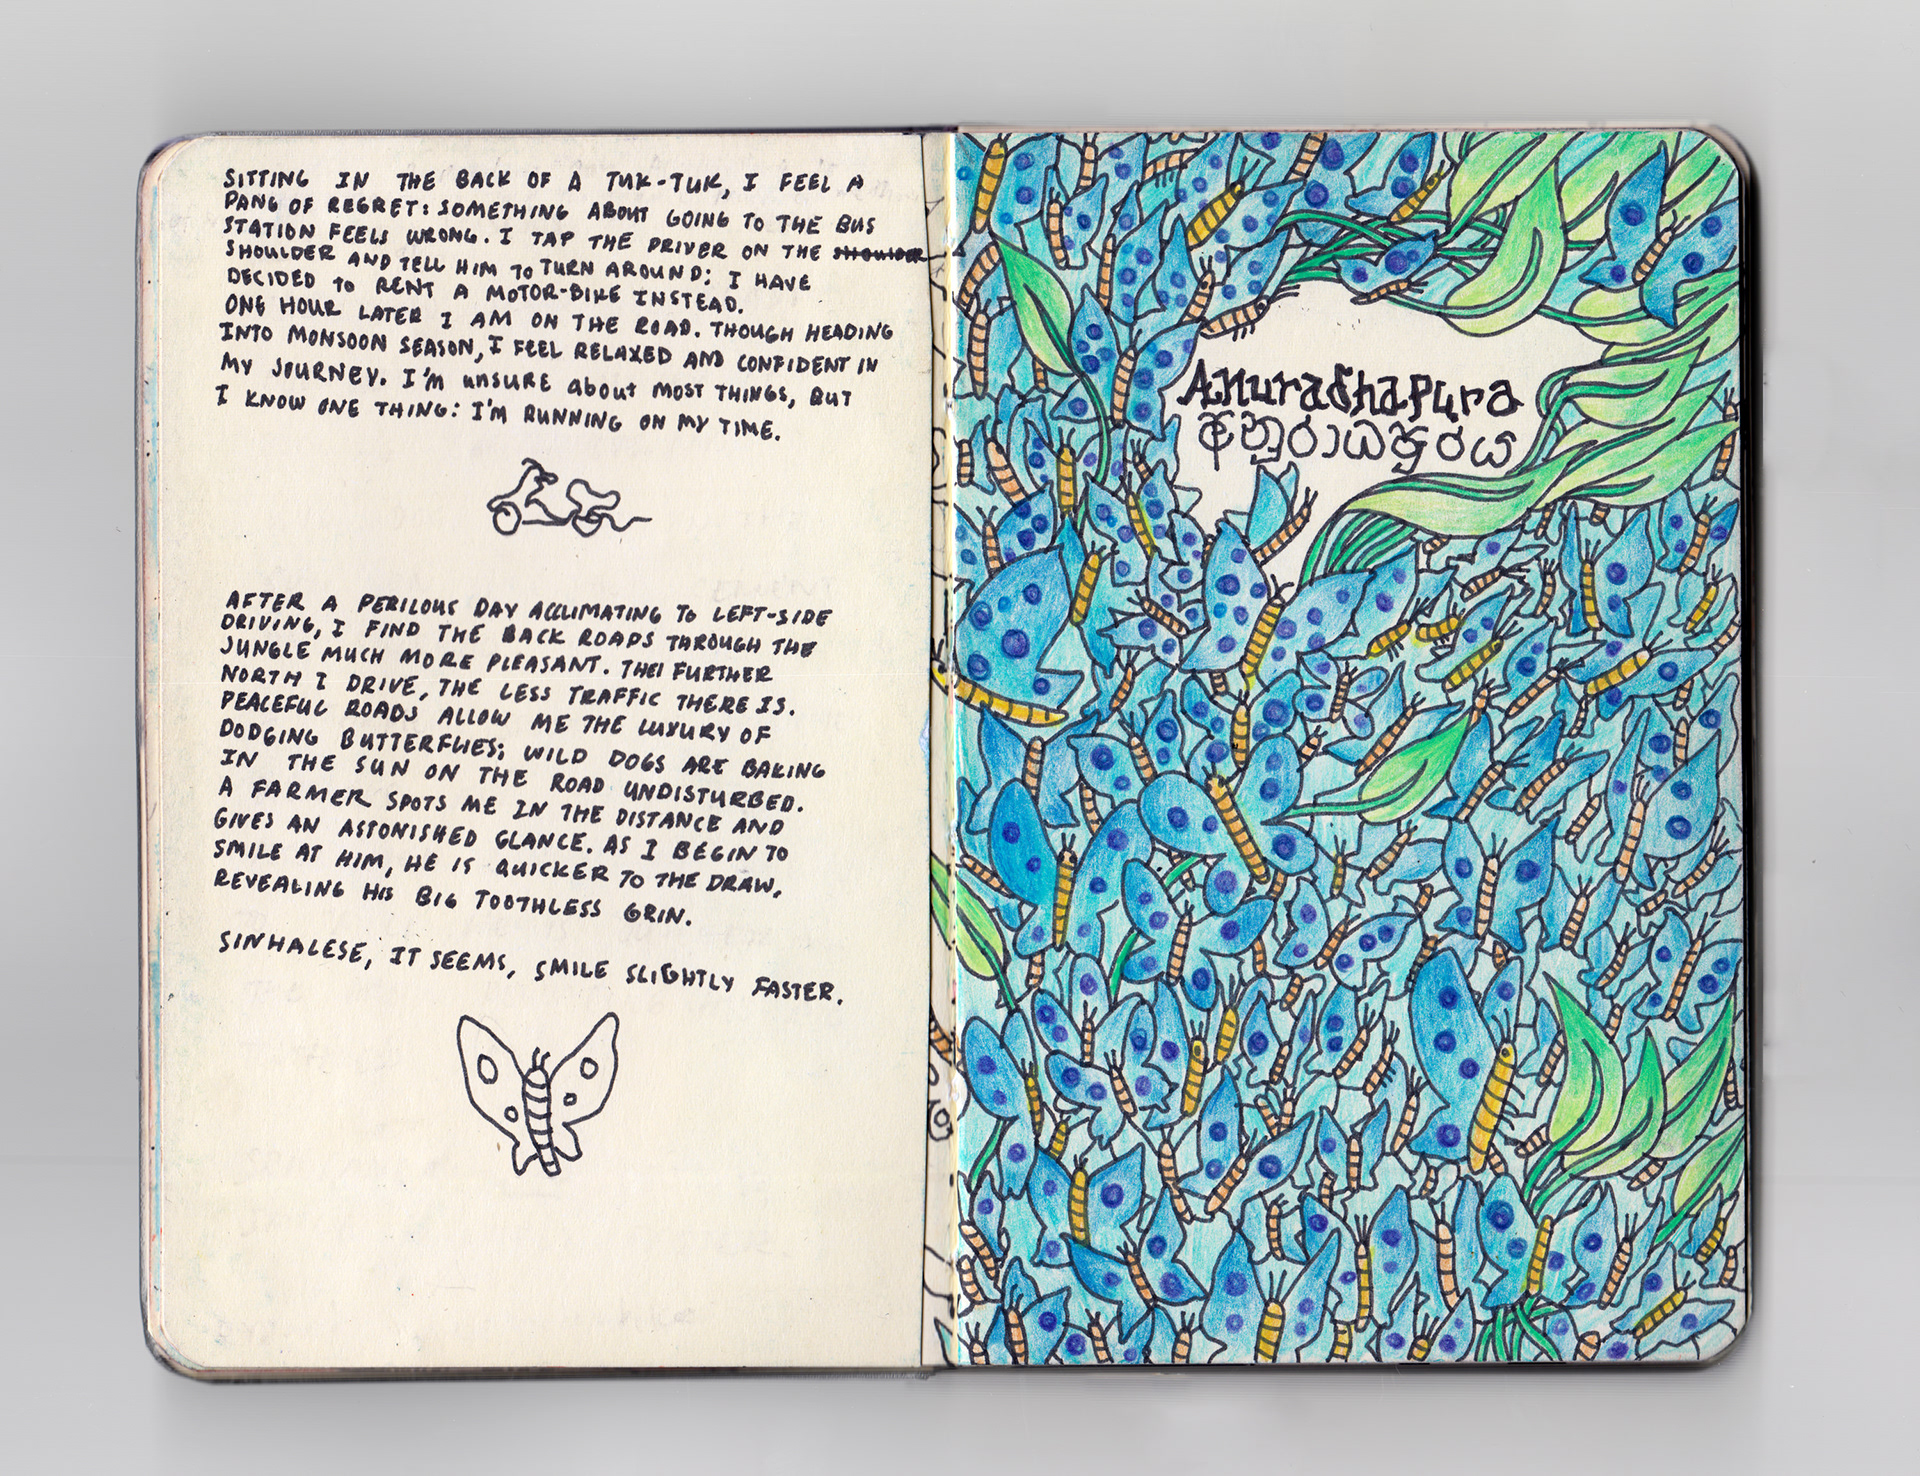 SITTING IN THE BACK OF A TUK-TUK, I FEEL A
PANG OF REGRET: SOMETHING ABOUT GOING TO THE BUS
STATION FEELS WRONG. I TAP THE DRIVER ON THE SHOULDER
SHOULDER AND TELL HIM TO TURN AROUND: I HAVE
DECIDED TO RENT A MOTOR-BIKE INSTEAD.
ONE HOUR LATER I AM ON THE ROAD. THOUGH HEADING
INTO MONSOON SEASON, I FEEL RELAXED AND CONFIDENT IN
MY JOURNEY. I'M UNSURE ABOUT MOST THINGS, BUT
I KNOW ONE THING: I'M RUNNING ON MY TIME.
AFTER A PERILOUS DAY ACCLIMATING TO LEFT-SIDE
DRIVING, I FIND THE BACK ROADS THROUGH THE
JUNGLE MUCH MORE PLEASANT. THE FURTHER
NORTH I DRIVE, THE LESS TRAFFIC THERE IS.
PEACEFUL ROADS ALLOW ME THE LUXURY OF
DODGING BUTTERFLIES; WILD DOGS ARE BAKING
IN THE SUN ON THE ROAD UNDISTURBED.
A FARMER SPOTS ME IN THE DISTANCE AND
GIVES AN ASTONISHED GLANCE. AS I BEGIN TO
SMILE AT HIM, HE IS QUICKER TO THE DRAW,
REVEALING HIS BIG TOOTHLESS GRIN.
SINHALESE, IT SEEMS, SMILE SLIGHTLY FASTER.
Anuradhapura
අනුරාධපුරය